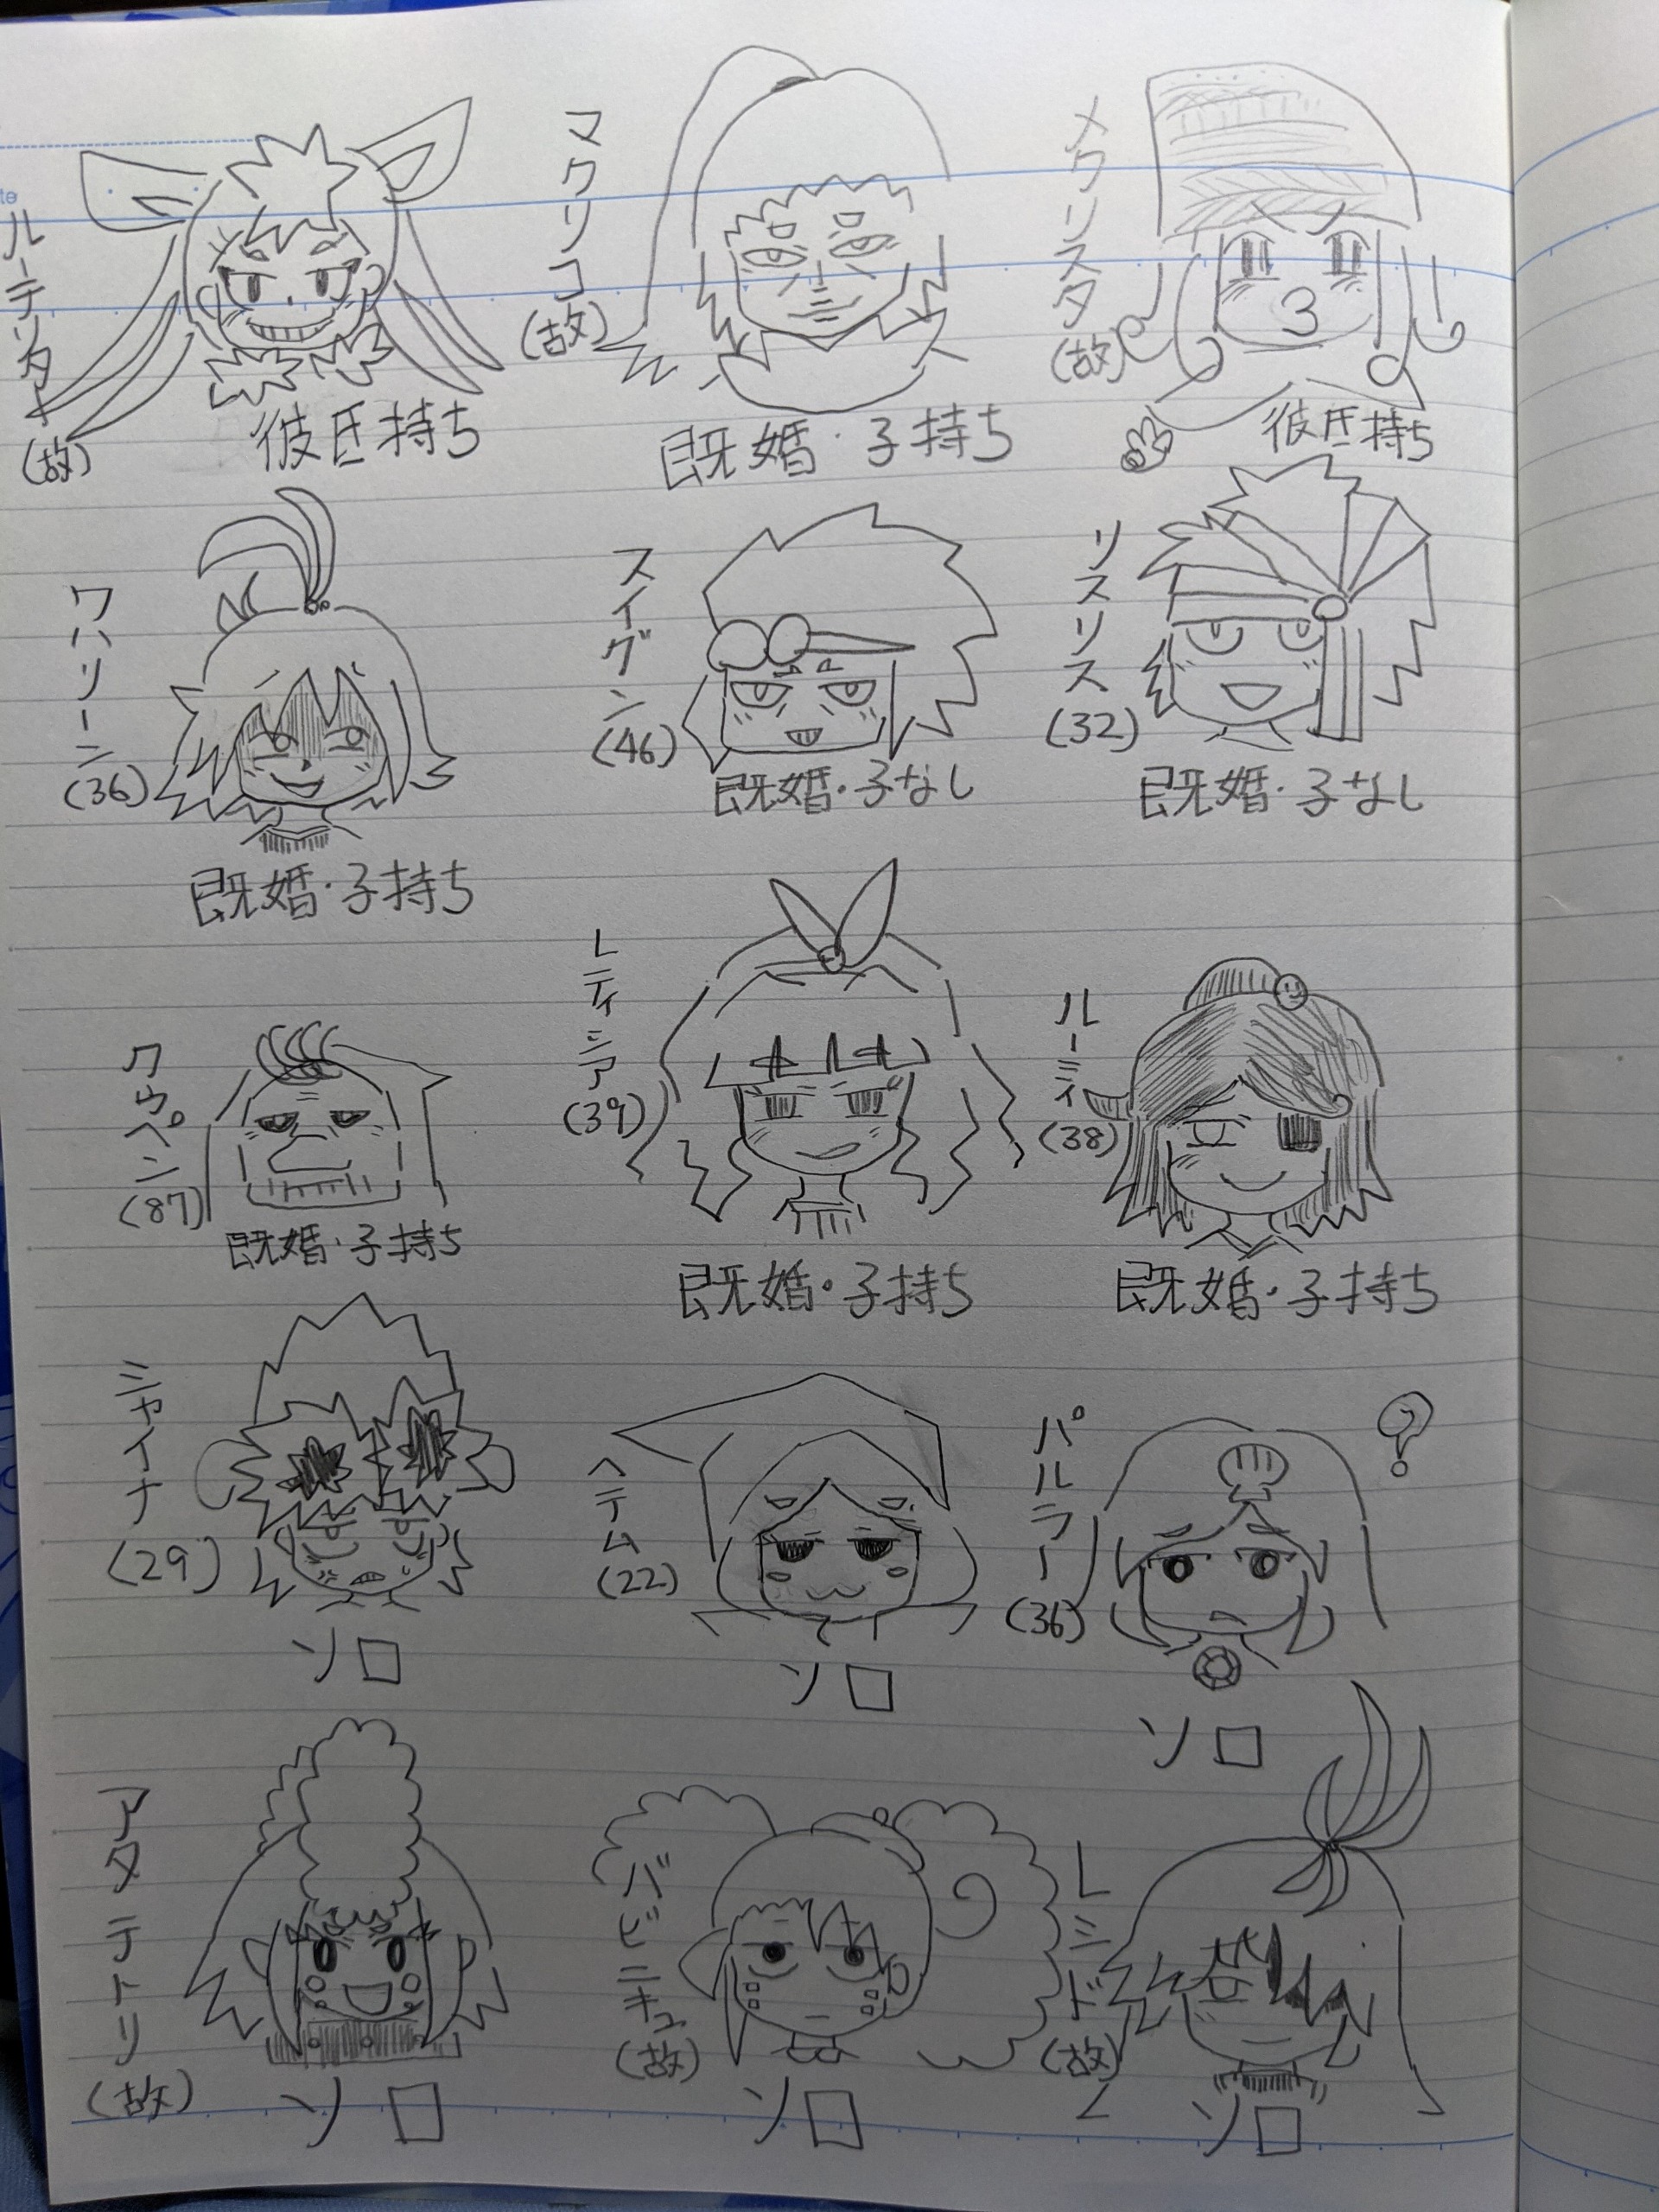 ルーテツター
(故)
彼氏持ち
マクリコ
(故)
既婚・子持ち
メクリスタ
(故)
彼氏持ち
ワハリーン
(36)
既婚・子持ち
スイグン
(46)
既婚・子なし
リスリス
(32)
既婚・子なし
クゥペン
(87)
既婚・子持ち
レティシア
(39)
既婚・子持ち
ルーミィ
(38)
既婚・子持ち
ミャイナ
(29)
ソロ
ヘテム
(22)
ソロ
パルラー
(36)
?
ソロ
アタテトリ
(故)
ソロ
バビニキュ
(故)
ソロ
レミド
(故)
ソロ